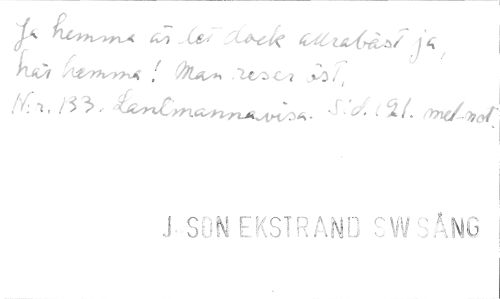 Ja hemma är det dock allrabäst ja,
här hemma! Man reser öst,
N:r. 133. Lantmannavisa. Sid. 121. med not.
J-SON EKSTRAND SW SÅNG